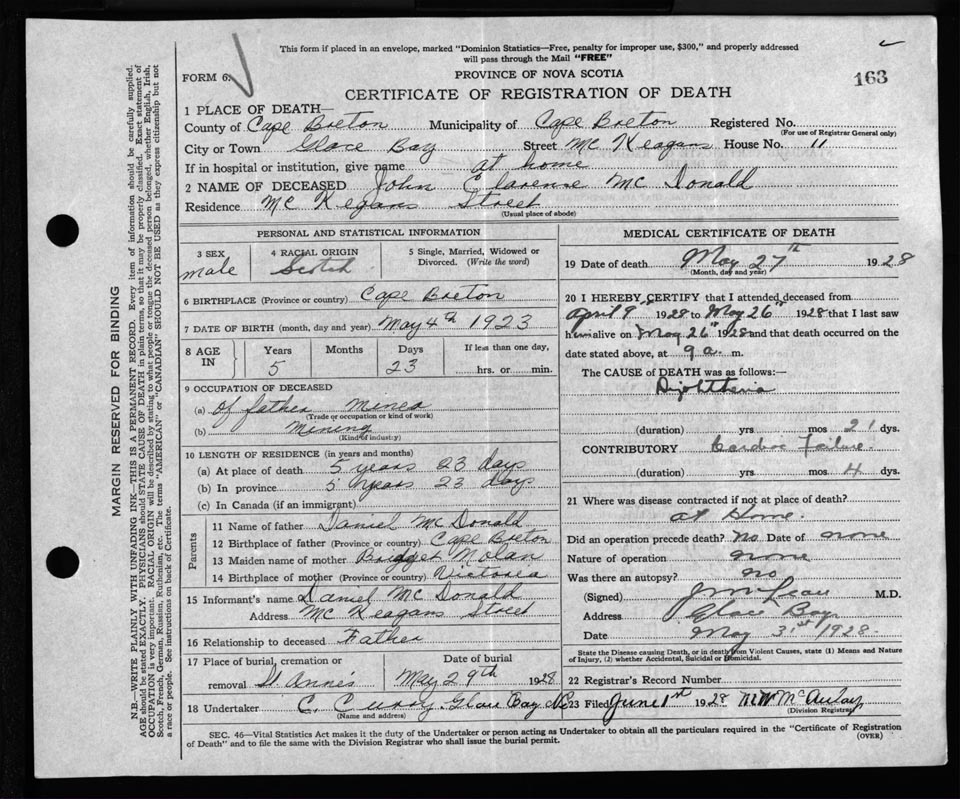 This form if placed in an envelope, marked "Dominion Statistics—Free, penalty for improper use, $300," and properly addressed
will pass through the Mail "FREE"
FORM 6.
PROVINCE OF NOVA SCOTIA
163
CERTIFICATE OF REGISTRATION OF DEATH
1 PLACE OF DEATH—
County of Cape Breton Municipality of Cape Breton Registered No.
(For use of Registrar General only)
City or Town Glace Bay Street Mc Keagans House No. 11
If in hospital or institution, give name at home
2 NAME OF DECEASED John Clarense Mc Donald
Residence Mc Kegans Street
(Usual place of abode)
PERSONAL AND STATISTICAL INFORMATION
3 SEX 4 RACIAL ORIGIN 5 Single, Married, Widowed or
Divorced. (Write the word)
male Scotch
6 BIRTHPLACE (Province or country) Cape Breton
7 DATE OF BIRTH (month, day and year) May 4th 1923
8 AGE IN Years Months Days If less than one day,
5 23 hrs. or min.
9 OCCUPATION OF DECEASED
(a) of father Miner
(Trade or occupation or kind of work)
(b) Mining
(Kind of industry)
10 LENGTH OF RESIDENCE (in years and months)
(a) At place of death 5 years 23 days
(b) In province 5 years 23 days
(c) In Canada (if an immigrant)
Parents
11 Name of father Daniel Mc Donald
12 Birthplace of father (Province or country) Cape Breton
13 Maiden name of mother Bridget Molan
14 Birthplace of mother (Province or country) Victoria
15 Informant's name Daniel Mc Donald
Address Mc Keagans Street
16 Relationship to deceased Father
17 Place of burial, cremation or Date of burial
removal St. Anne's May 29th 1928
18 Undertaker C. Curry, Glace Bay
(Name and address)
MEDICAL CERTIFICATE OF DEATH
19 Date of death May 27th 1928
(Month, day and year)
20 I HEREBY CERTIFY that I attended deceased from
April 9th 1928 to May 26th 1928 that I last saw
him alive on May 26th 1928 and that death occurred on the
date stated above, at 9 a. m.
The CAUSE of DEATH was as follows:—
Diphtheria
(duration) yrs mos 21 dys.
CONTRIBUTORY Cardiac Failure
(duration) yrs mos 4 dys.
21 Where was disease contracted if not at place of death?
at Home.
Did an operation precede death? No Date of none
Nature of operation none
Was there an autopsy? no
(Signed) M.D.
Address Glace Bay
Date May 31st 1928
State the Disease causing Death, or in death from Violent Causes, state (1) Means and
Nature of Injury, (2) whether Accidental, Suicidal or Homicidal.
22 Registrar's Record Number
23 Filed June 1st 1928 M McAulay
(Division Registrar)
SEC. 46—Vital Statistics Act makes it the duty of the Undertaker or person acting as Undertaker to obtain all the particulars required in the "Certificate of Registration
of Death" and to file the same with the Division Registrar who shall issue the burial permit. (OVER)
MARGIN RESERVED FOR BINDING
N.B.—WRITE PLAINLY WITH UNFADING INK—THIS IS A PERMANENT RECORD. Every item of information should be carefully supplied.
AGE should be stated EXACTLY. PHYSICIANS should STATE CAUSE OF DEATH in plain terms, so that it may be properly classified. Exact statement of
OCCUPATION is very important. RACIAL ORIGIN will be described by stating to what people or tongue the deceased person belonged, whether English, Irish,
Scotch, French, German, Russian, Ruthenian, etc. The terms "AMERICAN" or "CANADIAN" SHOULD NOT BE USED as they express citizenship but not
a race or people. See instructions on back of Certificate.